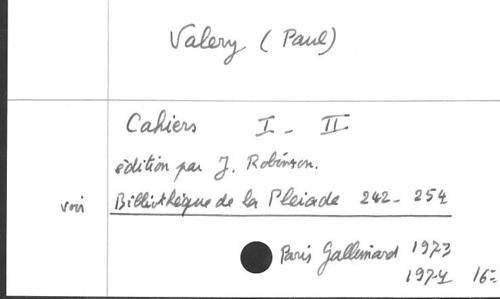 Valery (Paul)
Cahiers I - II
édition par J. Robinson.
voir Bibliothèque de la Pleiade 242 - 254
Paris Gallimard 1973
1974 16=